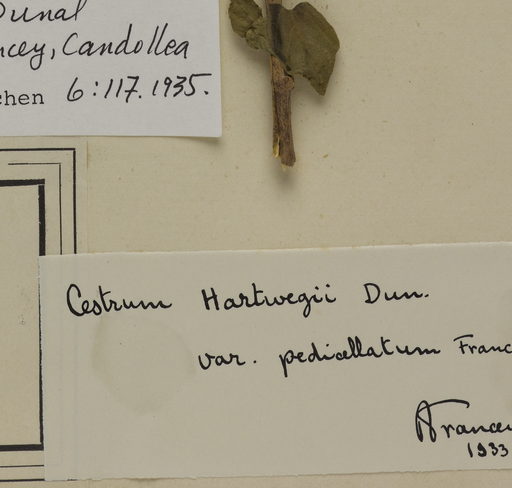 Dunal
ncey, Candollea
chen 6:117.1935.
Cestrum Hartwegii Dun.
var. pedicellatum Franc
Francey
1933